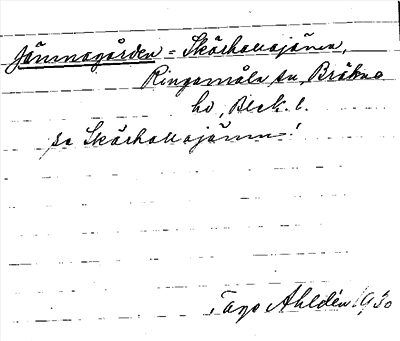 Jämnagården = Skärhallajämn,
Ringamåla sn, Bräkne
hd, Blek. l.
se Skärhallajämn!
Tage Ahldén 1930